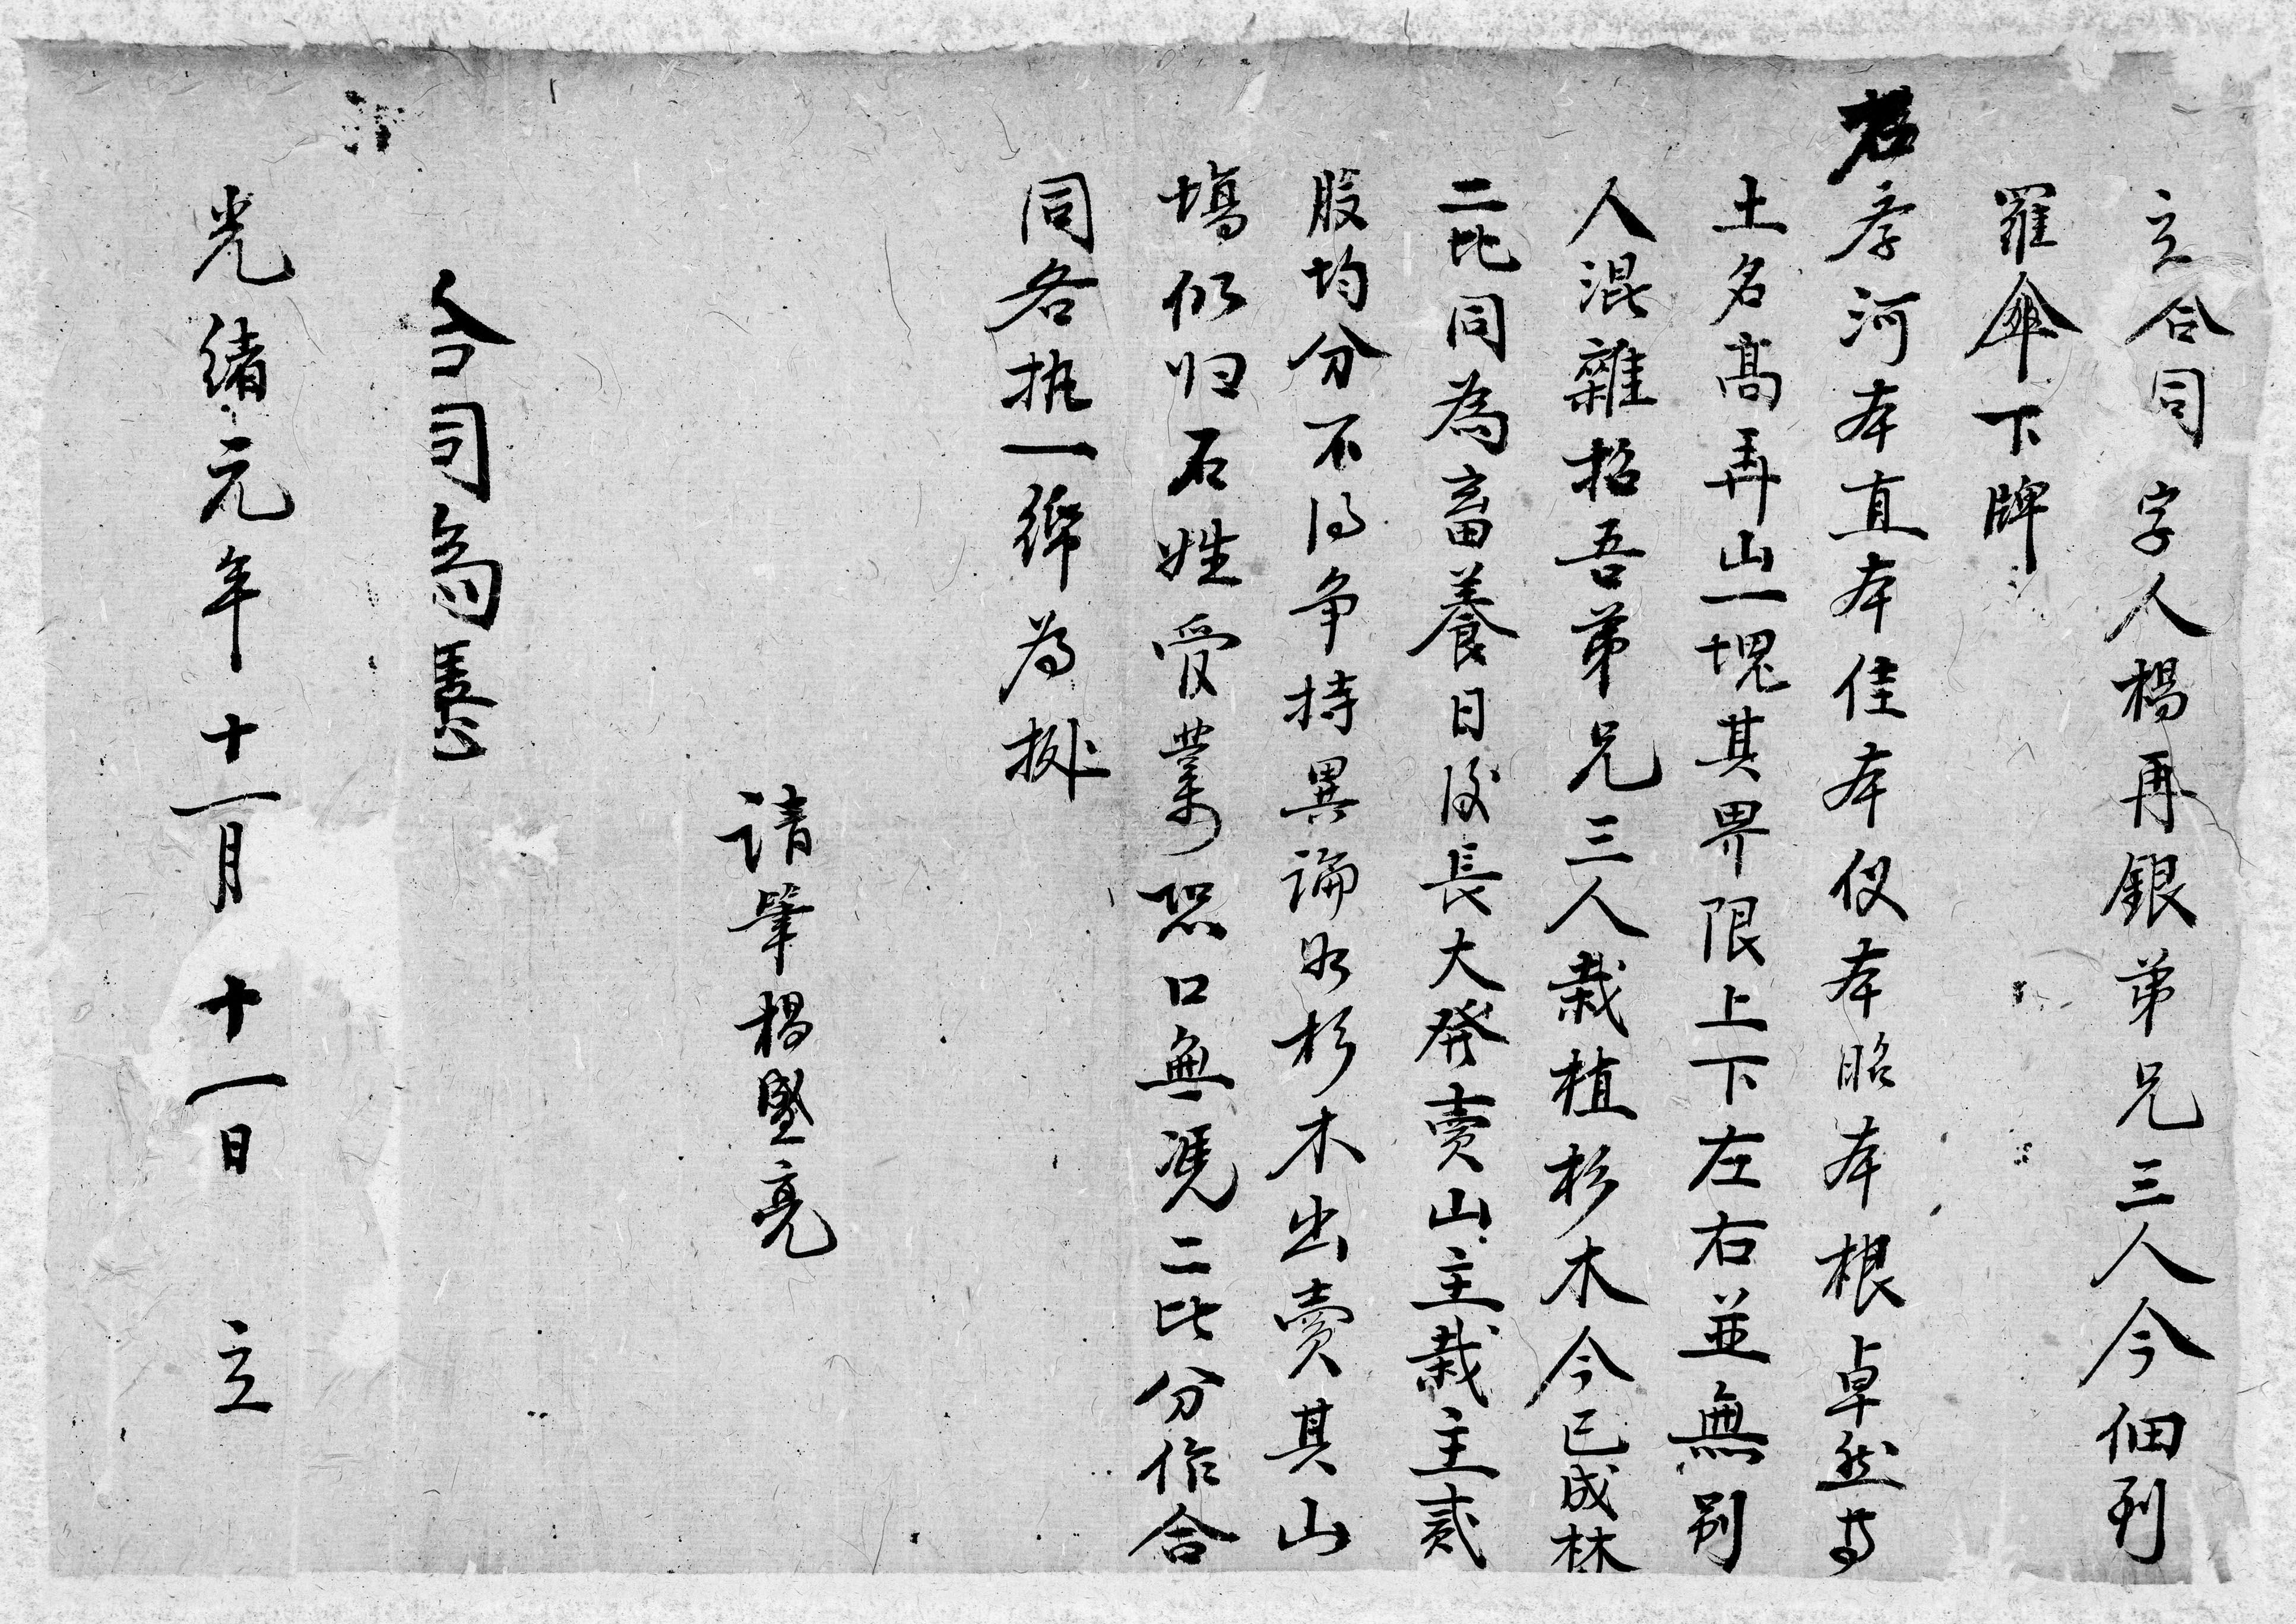 立合同字人楊再銀弟兄三人今佃到
羅傘下牌
石彥河本直本佳本仪本昭本根卓然等
土名高再山一塊其界限上下左右並無別
人混雜招吾弟兄三人栽植杉木今已成林
二比同為畜養日後長大發賣山主栽主貳
股均分不得争持異論如杉木出賣其山
塲仍归石姓受業恐口無凭二比分作合
同各执一綍為挀
请筆楊盛亮
合同為憑
光緒元年十一月十一日 立